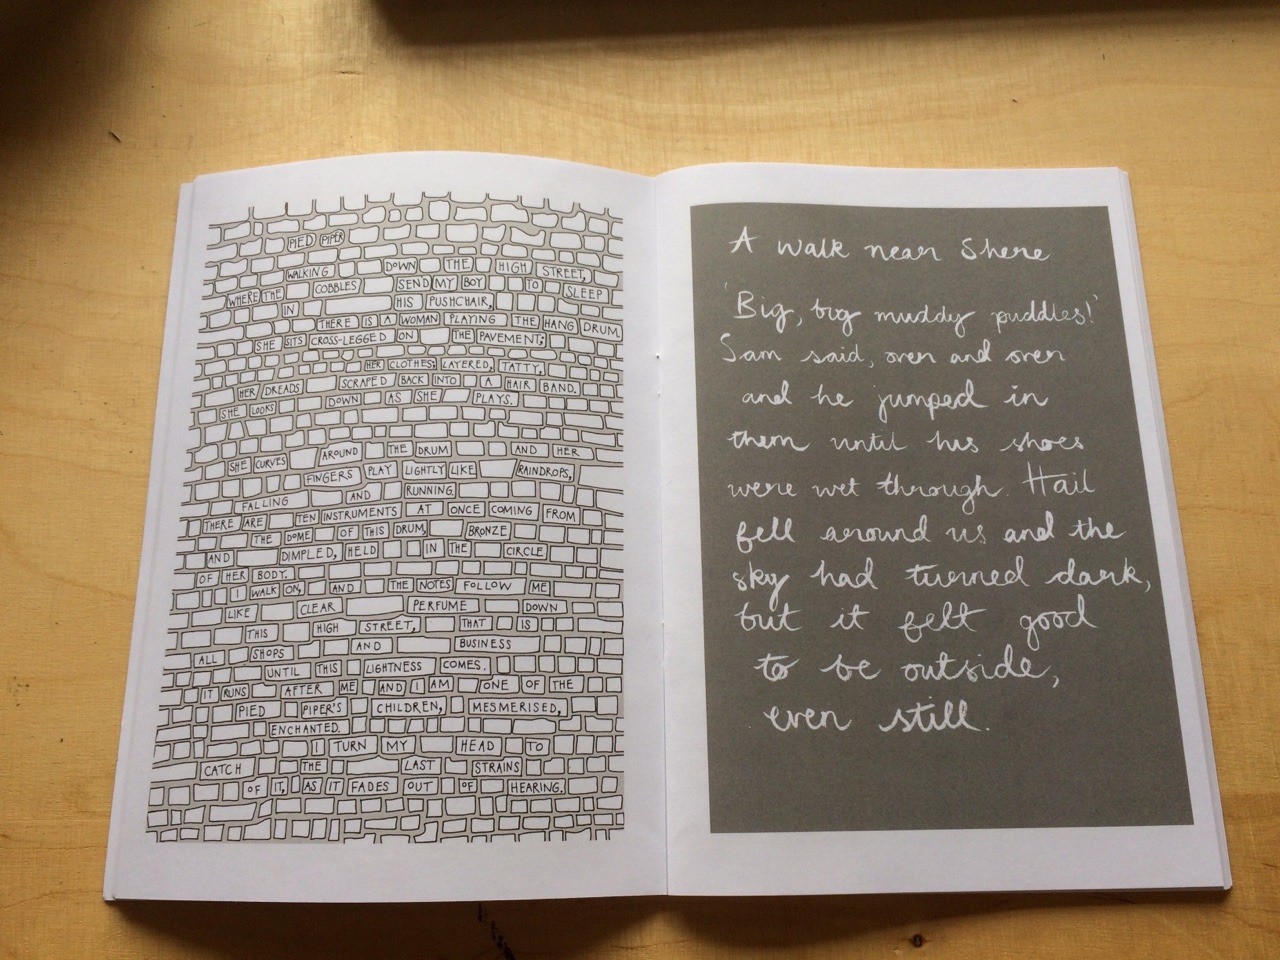 PIED PIPER
WALKING DOWN THE HIGH STREET,
WHERE THE COBBLES SEND MY BOY TO SLEEP
IN HIS PUSHCHAIR,
THERE IS A WOMAN PLAYING THE HANG DRUM
SHE SITS CROSS-LEGGED ON THE PAVEMENT;
HER CLOTHES LAYERED, TATTY,
HER DREADS SCRAPED BACK INTO A HAIR BAND.
SHE LOOKS DOWN AS SHE PLAYS.
SHE CURVES AROUND THE DRUM AND HER
FINGERS PLAY LIGHTLY LIKE RAINDROPS,
FALLING AND RUNNING.
THERE ARE TEN INSTRUMENTS AT ONCE COMING FROM
THE DOME OF THIS DRUM, BRONZE
AND DIMPLED, HELD IN THE CIRCLE
OF HER BODY.
I WALK ON, AND THE NOTES FOLLOW ME
LIKE CLEAR PERFUME DOWN
THIS HIGH STREET, THAT IS
ALL SHOPS AND BUSINESS
UNTIL THIS LIGHTNESS COMES.
IT RUNS AFTER ME AND I AM ONE OF THE
PIED PIPER'S CHILDREN, MESMERISED,
ENCHANTED.
I TURN MY HEAD TO
CATCH THE LAST STRAINS
OF IT, AS IT FADES OUT OF HEARING.
A walk near Shere
'Big, big muddy puddles!'
Sam said, over and over
and he jumped in
them until his shoes
were wet through. Hail
fell around us and the
sky had turned dark,
but it felt good
to be outside,
even still.